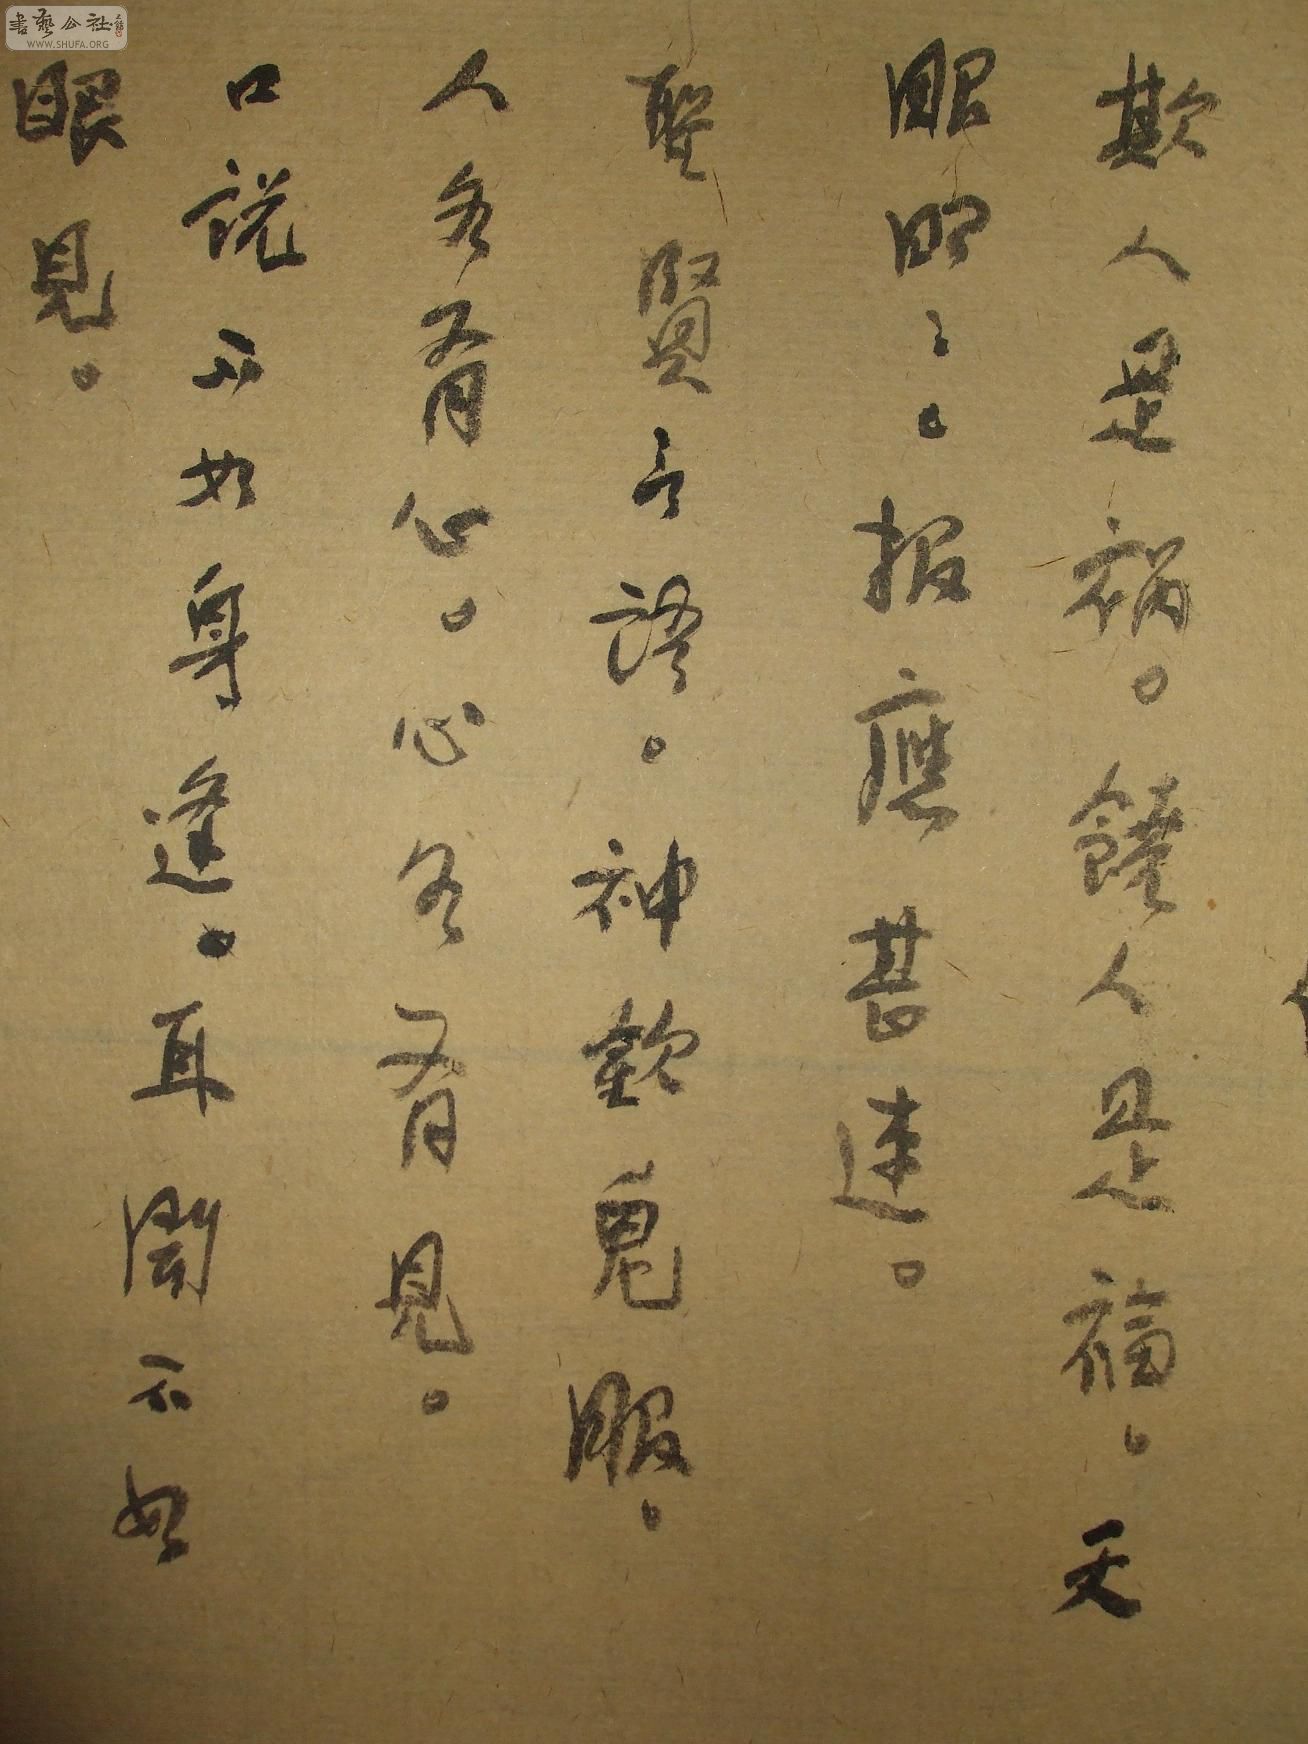 書藝公社
WWW.SHUFA.ORG
欺人是禍。饒人是福。天
眼昭々。報應甚速。
聖賢言語。神欽鬼服。
人各有心。心各有見。
口説不如身逢。耳聞不如
眼見。